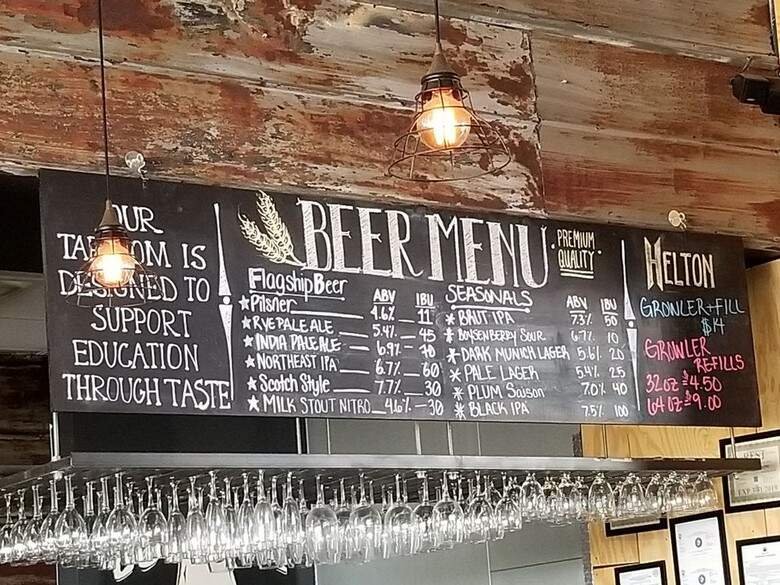 OUR
TAPROOM IS
DESIGNED TO
SUPPORT
EDUCATION
THROUGH TASTE
BEER MENU
PREMIUM
QUALITY
Flagship Beer ABV IBU
Pilsner 4.6% 11
RYE PALE ALE 5.4% 45
INDIA PALE ALE 6.9% 70
NORTHEAST IPA 6.7% 60
Scotch Style 7.7% 30
MILK STOUT NITRO 4.6% 30
SEASONALS ABV IBU
BRUT IPA 7.3% 50
BOYSENBERRY SOUR 6.7% 10
DARK MUNICH LAGER 5.6% 20
PALE LAGER 5.4% 25
PLUM Saison 7.0% 40
BLACK IPA 7.5% 100
HELTON
GROWLER + FILL
$14
GROWLER
REFILLS
32oz = $4.50
64oz = $9.00
BEST